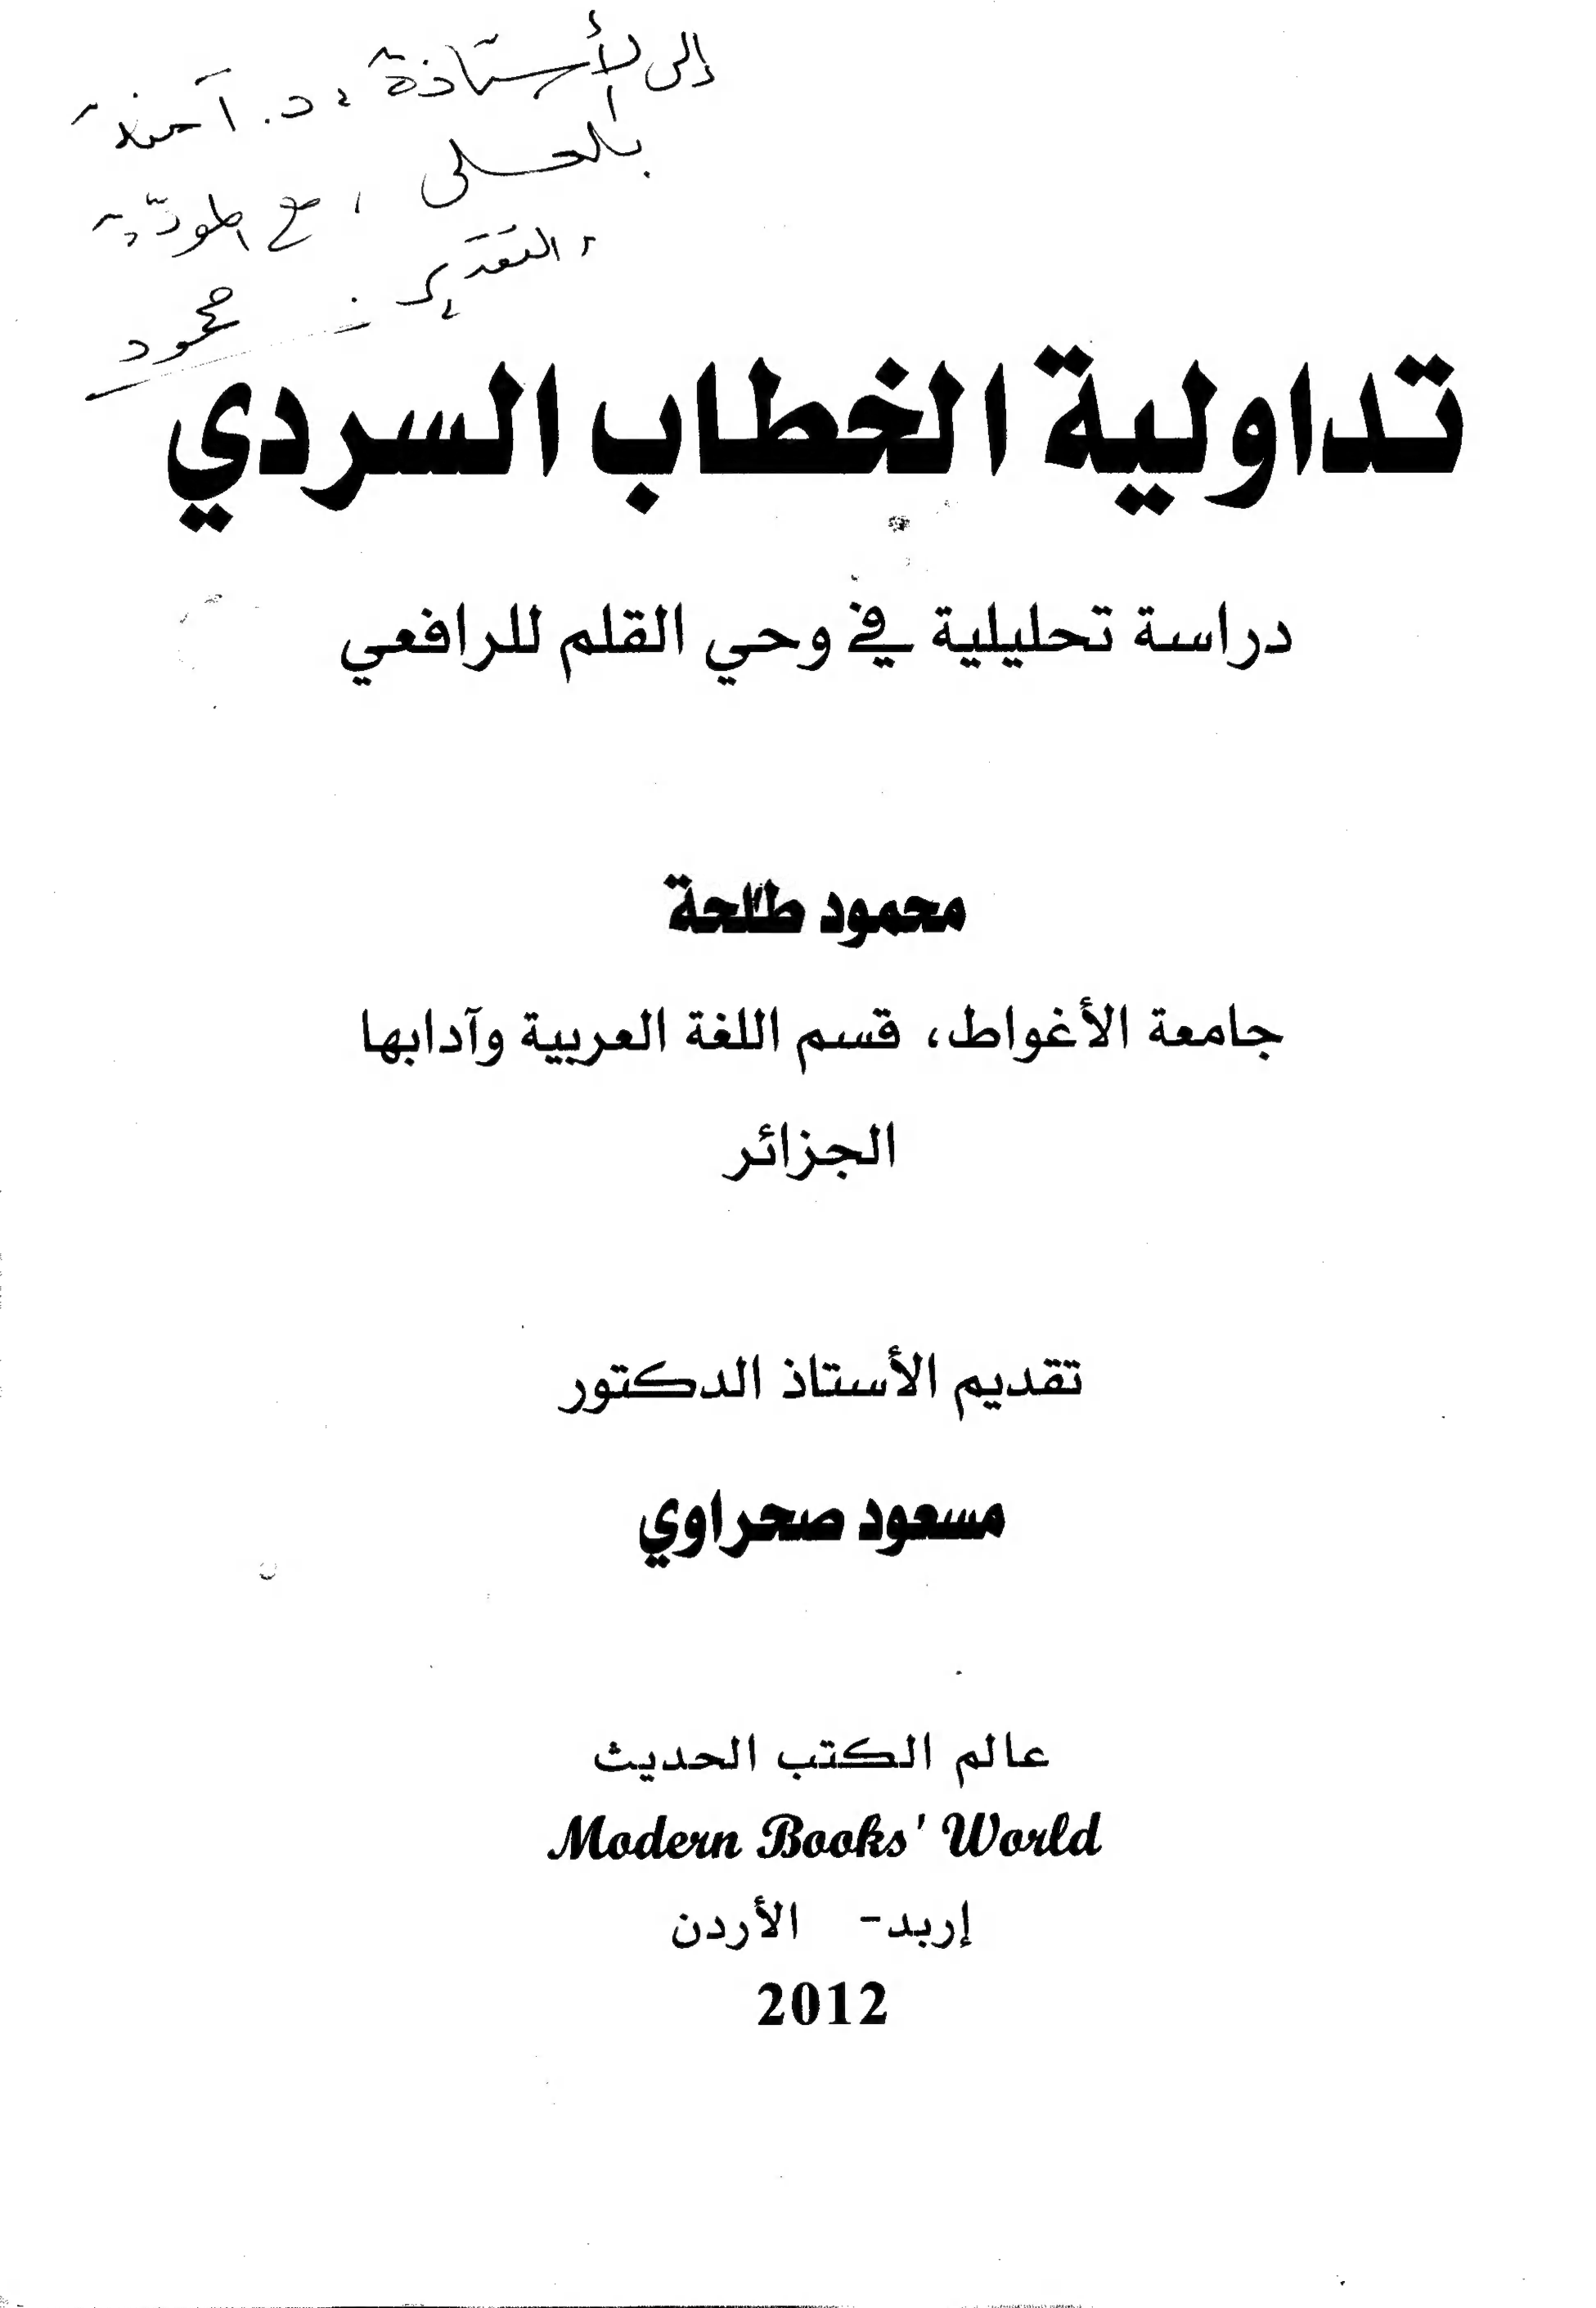 إلى الأستاذة، د. آمنة
بالعلى، مع المودّة
و التقدير
محمود
تداولية الخطاب السردي
دراسة تحليلية في وحي القلم للرافعي
محمود طلحة
جامعة الأغواط، قسم اللغة العربية وآدابها
الجزائر
تقديم الأستاذ الدكتور
مسعود صحراوي
عالم الكتب الحديث
Modern Books' World
إربد- الأردن
2012